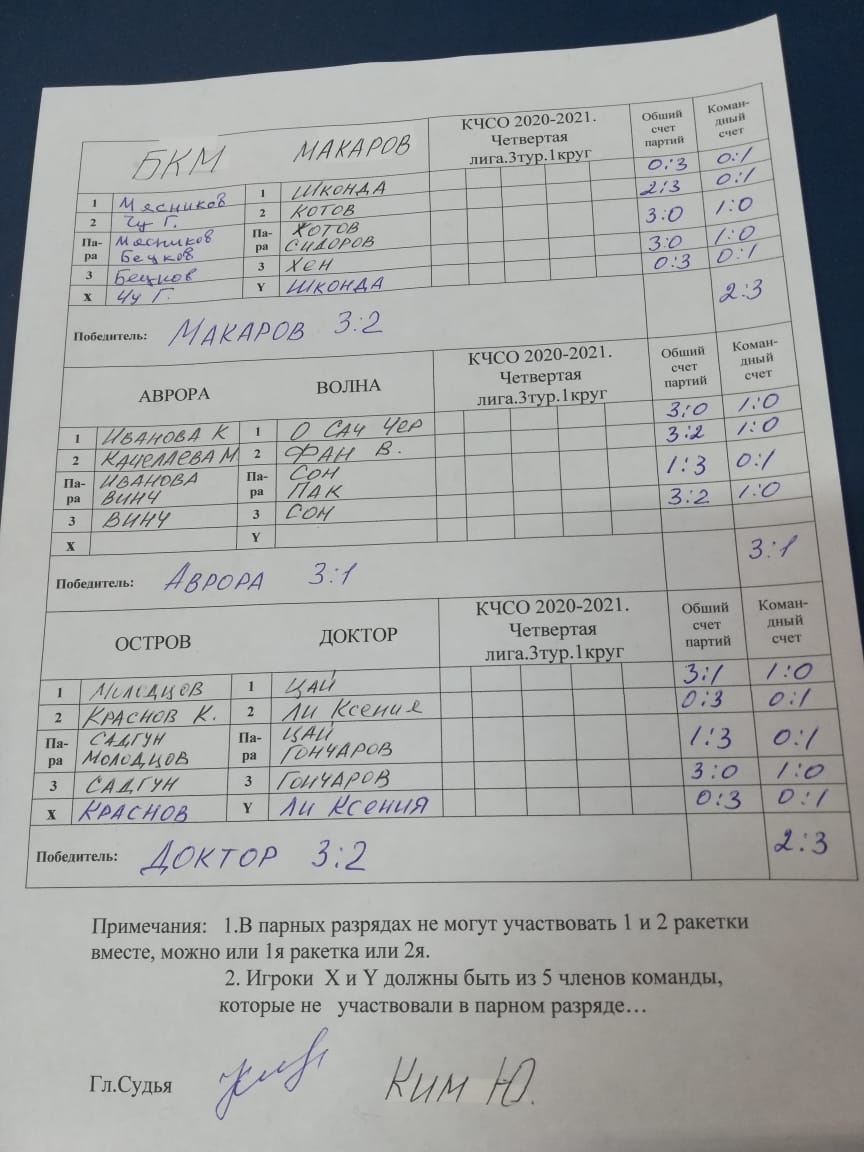 БКМ МАКАРОВ КЧСО 2020-2021. Четвертая лига.3тур.1круг Обший счет партий Коман-дный счет
1 Мясников 1 ШКОНДА 0:3 0:1
2 Чу Г. 2 КОТОВ 2:3 0:1
Па-ра Мясников Бецков Па-ра КОТОВ СИДОРОВ 3:0 1:0
3 Бецков 3 ХЕН 3:0 1:0
X Чу Г. Y ШКОНДА 0:3 0:1
Победитель: МАКАРОВ 3:2 2:3
АВРОРА ВОЛНА КЧСО 2020-2021. Четвертая лига.3тур.1круг Обший счет партий Коман-дный счет
1 ИВАНОВА К 1 О САЧ ЧЕР 3:0 1:0
2 КАЧЕЛАЕВА М 2 ФАН В. 3:2 1:0
Па-ра ИВАНОВА ВИНЧ Па-ра СОН ПАК 1:3 0:1
3 ВИНЧ 3 СОН 3:2 1:0
X Y
Победитель: АВРОРА 3:1 3:1
ОСТРОВ ДОКТОР КЧСО 2020-2021. Четвертая лига.3тур.1круг Обший счет партий Коман-дный счет
1 МОЛОДЦОВ 1 ЦАЙ 3:1 1:0
2 КРАСНОВ К. 2 ЛИ КСЕНИЯ 0:3 0:1
Па-ра САДГУН МОЛОДЦОВ Па-ра ЦАЙ ГОНЧАРОВ 1:3 0:1
3 САДГУН 3 ГОНЧАРОВ 3:0 1:0
X КРАСНОВ Y ЛИ КСЕНИЯ 0:3 0:1
Победитель: ДОКТОР 3:2 2:3
Примечания: 1.В парных разрядах не могут участвовать 1 и 2 ракетки
вместе, можно или 1я ракетка или 2я.
2. Игроки X и Y должны быть из 5 членов команды,
которые не участвовали в парном разряде…
Гл.Судья КИМ Ю.